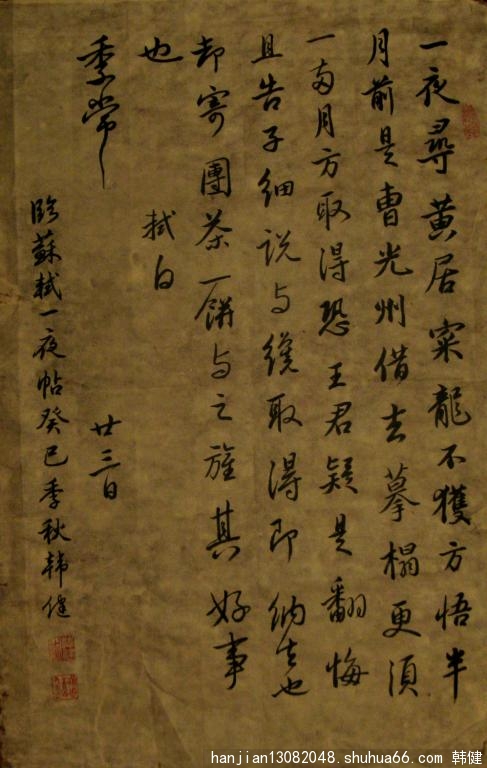 一夜尋黄居寀龍不獲方悟半
月前是曹光州借去摹榻更須
一兩月方取得恐王君疑是翻悔
且告子細説与纔取得即納去也
却寄團茶一餅与之旌其好事
也
軾白
季常
廿三日
臨蘇軾一夜帖癸巳季秋韩健
hanjian13082048.shuhua66.com 韩健